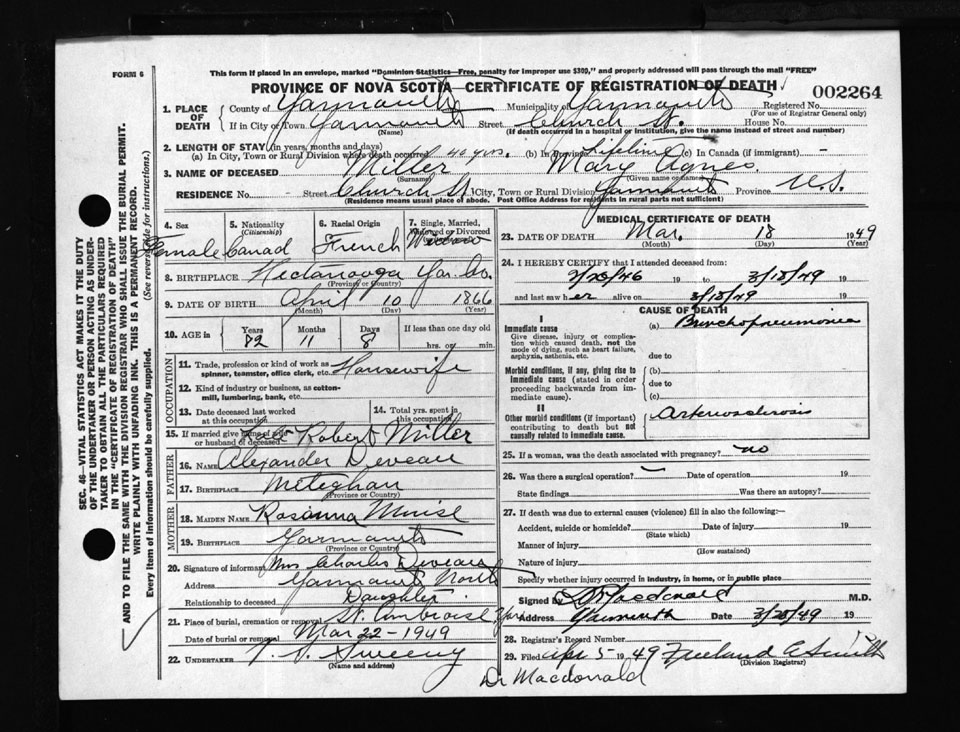 FORM 6
This form if placed in an envelope, marked "Dominion Statistics—Free, penalty for improper use $300," and properly addressed will pass through the mail "FREE"
PROVINCE OF NOVA SCOTIA—CERTIFICATE OF REGISTRATION OF DEATH
002264
1. PLACE OF DEATH County of Yarmouth Municipality of Yarmouth Registered No.
(For use of Registrar General only)
If in City or Town Yarmouth Street Church St. House No.
(Name) (If death occurred in a hospital or institution, give the name instead of street and number)
2. LENGTH OF STAY (in years, months and days)
(a) In City, Town or Rural Division where death occurred 40 yrs. (b) In Province Lifetime (c) In Canada (if immigrant) -
3. NAME OF DECEASED Miller Mary Agnes
(Surname) (Given name or names)
RESIDENCE No. - Street Church St. City, Town or Rural Division Yarmouth Province N.S.
(Residence means usual place of abode. Post Office Address for residents in rural parts not sufficient)
4. Sex 5. Nationality (Citizenship) 6. Racial Origin 7. Single, Married, Widowed or Divorced
Female Canad French Widow
8. BIRTHPLACE Hectanooga Yar. Co.
(Province or Country)
9. DATE OF BIRTH April 10 1866
(Month) (Day) (Year)
10. AGE in Years Months Days If less than one day old
82 11 8 hrs. or min.
OCCUPATION
11. Trade, profession or kind of work as spinner, teamster, office clerk, etc. Housewife
12. Kind of industry or business, as cotton-mill, lumbering, bank, etc.
13. Date deceased last worked at this occupation
14. Total yrs. spent in this occupation
15. If married give name of wife or husband of deceased Robert Miller
FATHER
16. NAME Alexander Deveau
17. BIRTHPLACE Meteghan
(Province or Country)
MOTHER
18. MAIDEN NAME Rosanna Muise
19. BIRTHPLACE Yarmouth
(Province or Country)
20. Signature of informant Mrs Charles Deveau
Address Yarmouth North
Relationship to deceased Daughter
21. Place of burial, cremation or removal St. Ambroise Yar
Date of burial or removal Mar 22-1949
22. UNDERTAKER V. S. Sweeny
(Name and address)
MEDICAL CERTIFICATE OF DEATH
23. DATE OF DEATH Mar. 18 1949
(Month) (Day) (Year)
24. I HEREBY CERTIFY that I attended deceased from:
19 to 3/18/49 19
and last saw her alive on 3/18/49 19
CAUSE OF DEATH
I
Immediate cause (a) Bronchopneumonia
Give disease, injury or complication which caused death, not the mode of dying, such as heart failure, asphyxia, asthenia, etc.
due to
Morbid conditions, if any, giving rise to immediate cause (stated in order proceeding backwards from immediate cause).
(b)
due to
(c)
II
Other morbid conditions (if important) contributing to death but not causally related to immediate cause. Arteriosclerosis
25. If a woman, was the death associated with pregnancy? no
26. Was there a surgical operation? - Date of operation 19
State findings Was there an autopsy?
27. If death was due to external causes (violence) fill in also the following:
Accident, suicide or homicide? Date of injury 19
(State which)
Manner of injury
(How sustained)
Nature of injury
Specify whether injury occurred in industry, in home, or in public place
Signed by Macdonald M.D.
Address Yarmouth Date 3/28/49 19
28. Registrar's Record Number
29. Filed Apr 5 1949 Freeland C Smith
(Division Registrar)
Dr Macdonald
SEC. 46—VITAL STATISTICS ACT MAKES IT THE DUTY OF THE UNDERTAKER OR PERSON ACTING AS UNDERTAKER TO OBTAIN ALL THE PARTICULARS REQUIRED IN THE "CERTIFICATE OF REGISTRATION OF DEATH" AND TO FILE THE SAME WITH THE DIVISION REGISTRAR WHO SHALL ISSUE THE BURIAL PERMIT.
WRITE PLAINLY WITH UNFADING INK. THIS IS A PERMANENT RECORD.
Every item of information should be carefully supplied. (See reverse side for instructions.)